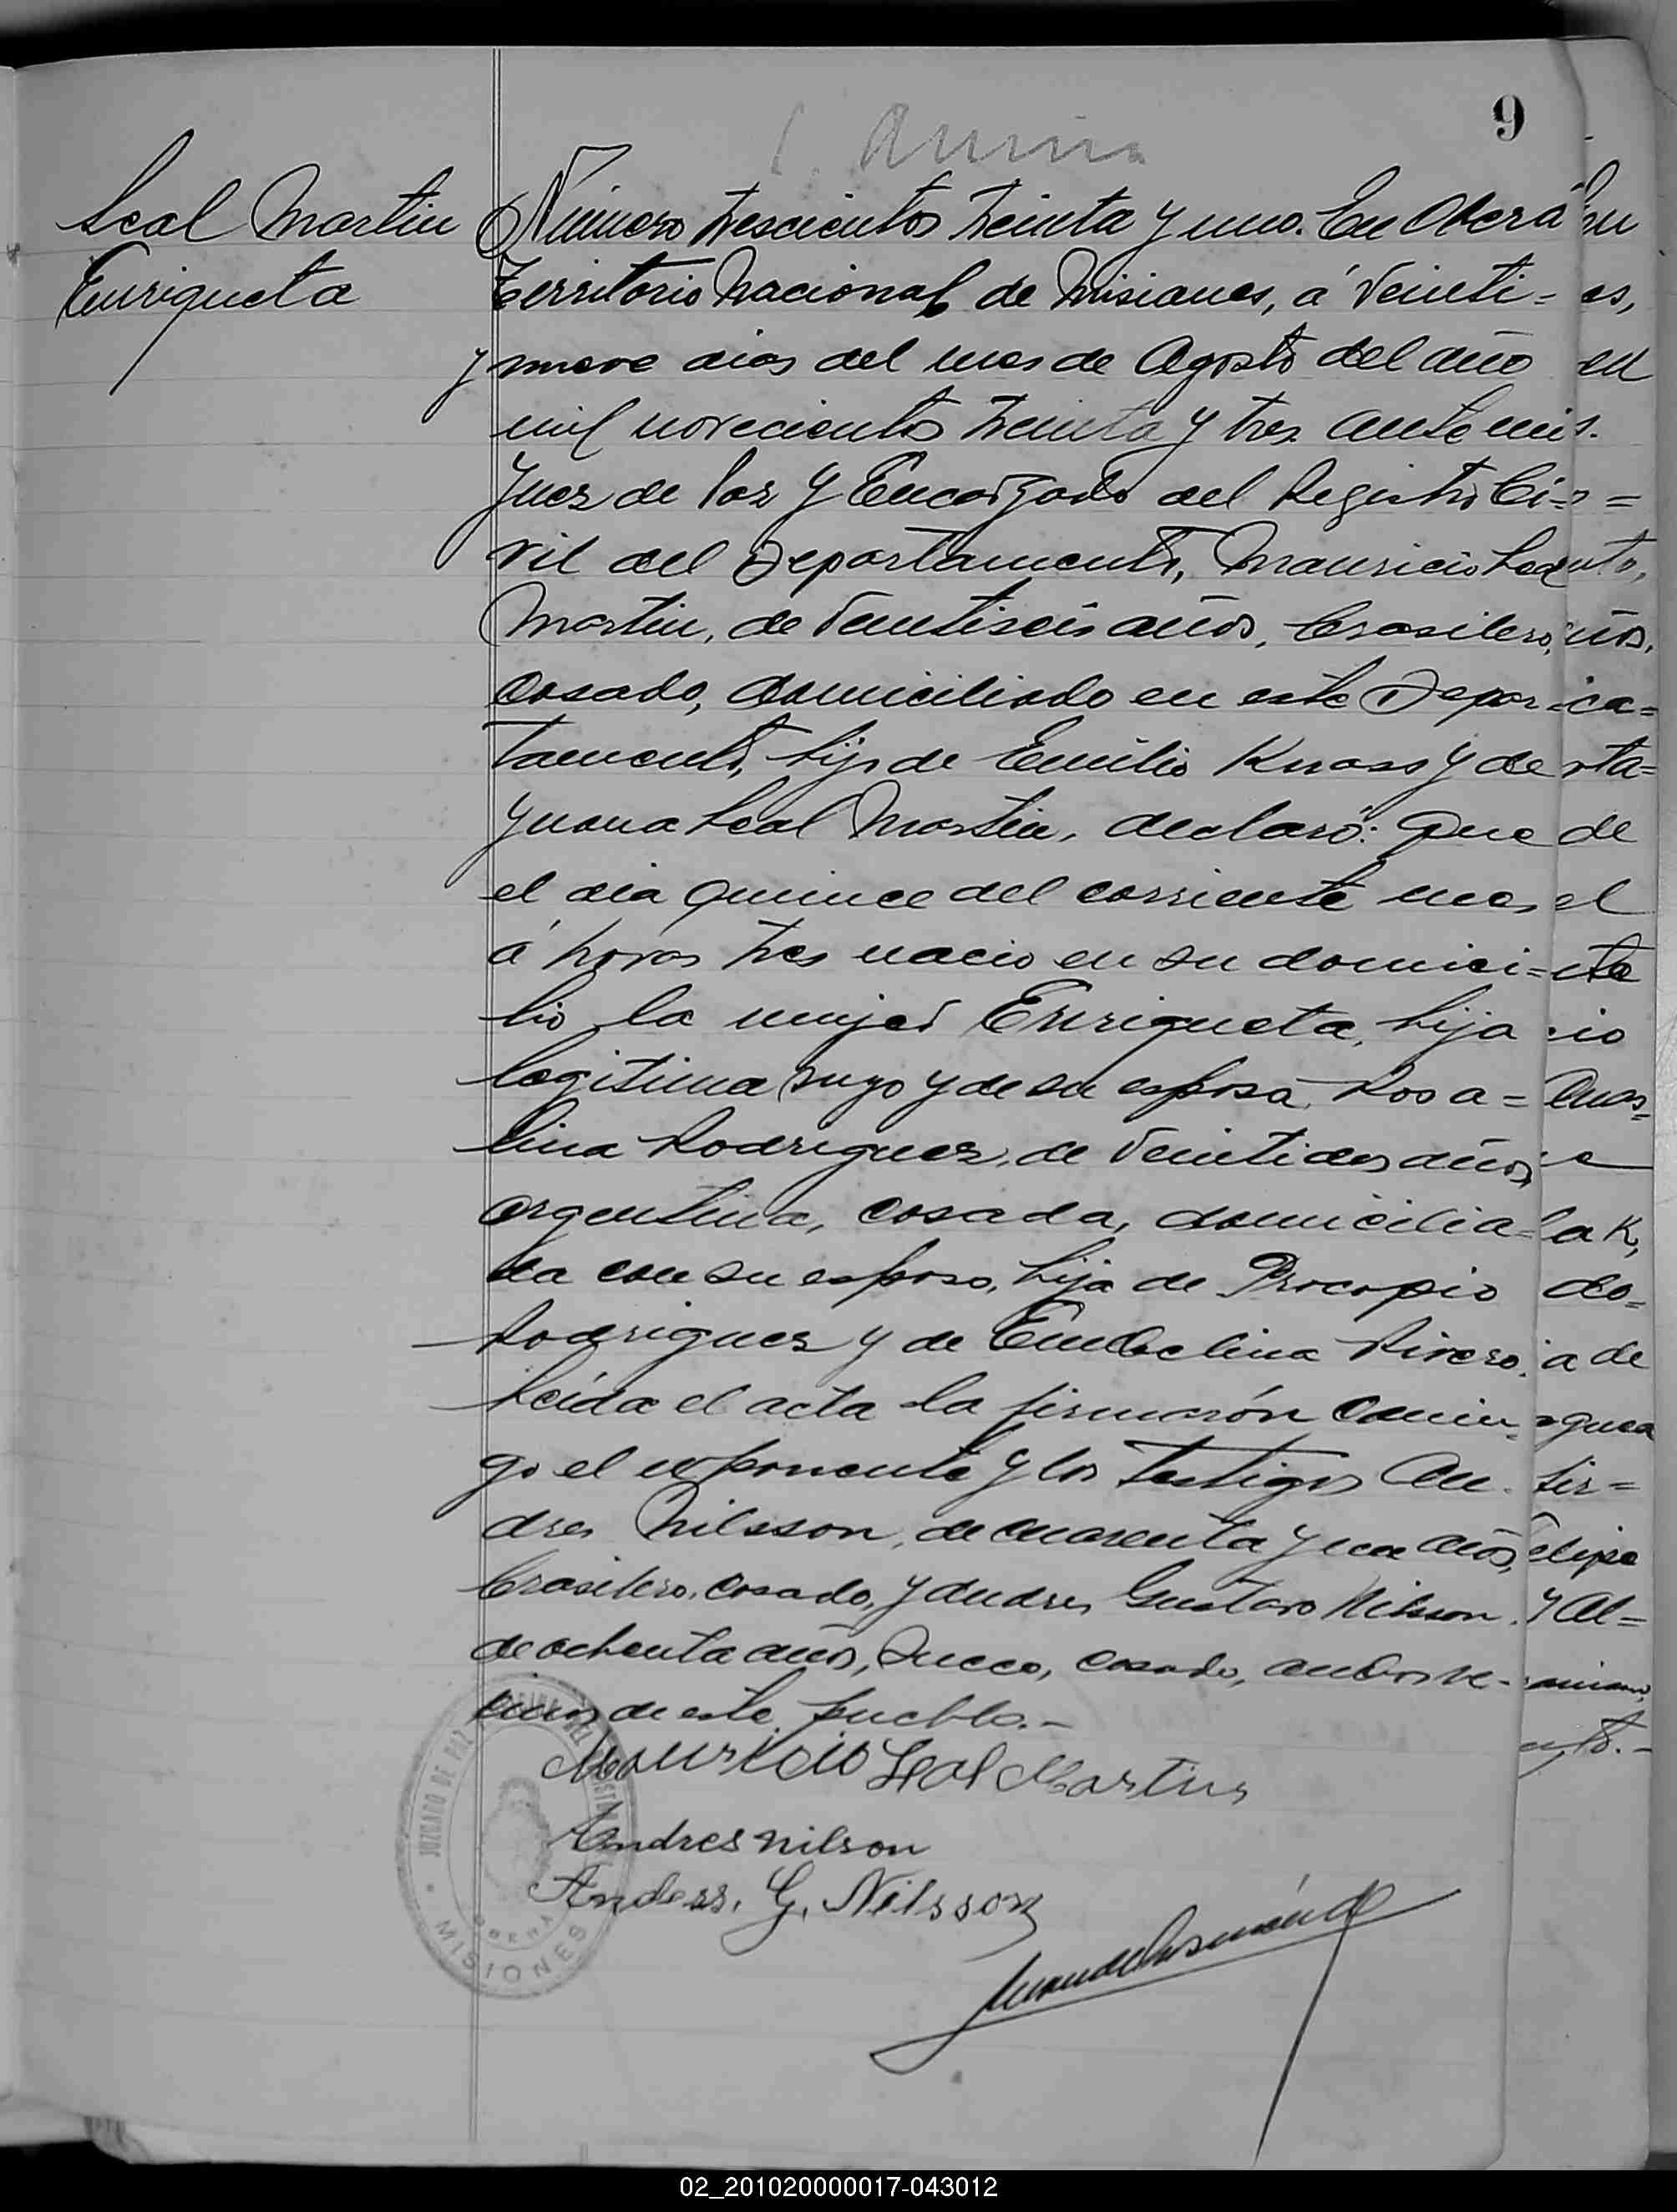 9
Leal Martin
Enriqueta
Número trescientos treinta y uno. En Oberá
Territorio Nacional de Misiones, á veinti=
y nueve dias del mes de Agosto del año
mil novecientos treinta y tres ante mi
Juez de Paz y Encargado del Registro Ci=
vil del Departamento, Mauricio Leal
Martin, de veintiseis años, brasilero,
casado, domiciliado en este Depar-
tamento, hijo de Emilio Knass y de
Juana Leal Martin, declaró: Que
el dia quince del corriente mes
á horas tres nacio en su domici=
lio la mujer Enriqueta, hija
legitima suya y de su esposa Rosa=
lina Rodriguez, de veintidos años,
argentina, casada, domicilia=
da con su esposo, hija de Procopio
Rodriguez y de Embelina Rivero.
Leída el acta la firmarón conmi-
go el exponente y los testigos An-
dres Nilsson, de cuarenta y un años,
brasilero, casado, y Andres Gustavo Nilsson,
de ochenta años, sueco, casado, ambos ve-
cinos de este pueblo.-
Mauricio Leal Martins
Andres nilson
Anders. G. Nilsson
JUZGADO DE PAZ
MISIONES
02_201020000017-043012